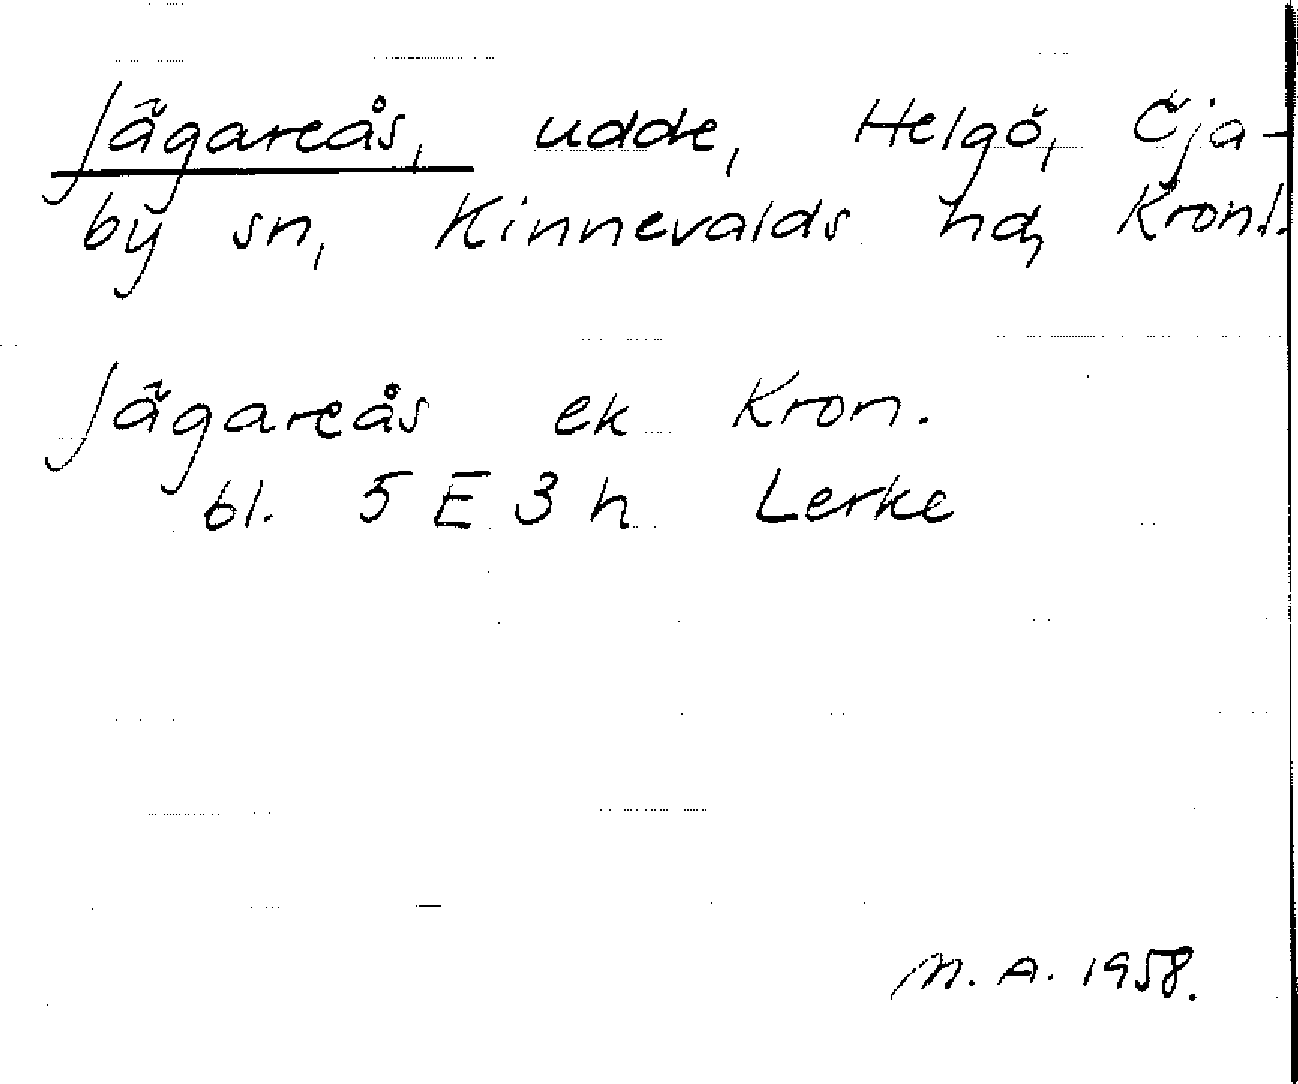 Jägareås, udde, Helgö, Öja-
by sn, Kinnevalds hd, Kronl.
Jägareås ek Kron.
bl. 5 E 3 h Lerke
M. A. 1958.